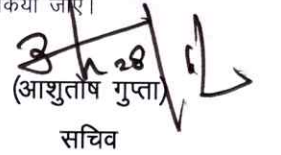 किया जाए।
(आशुतोष गुप्ता)
सचिव